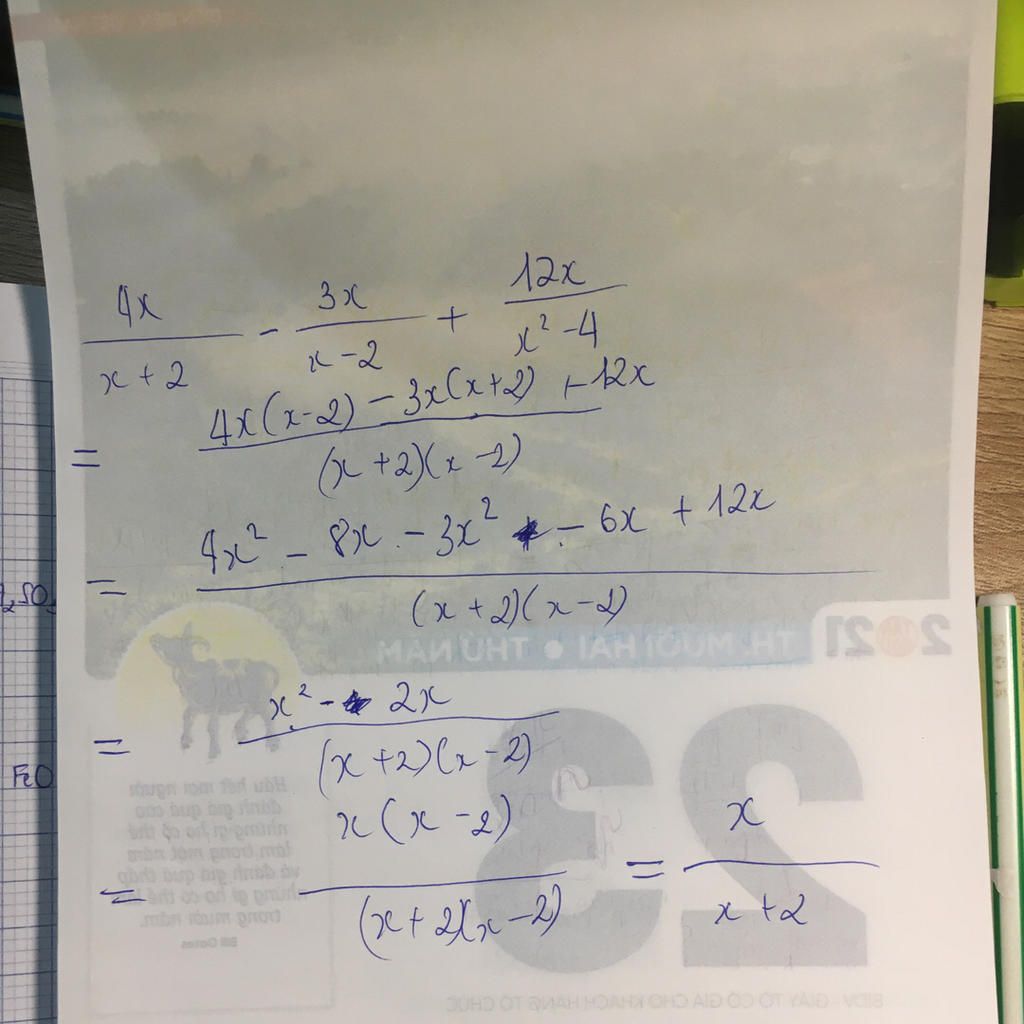 4x/(x+2) - 3x/(x-2) + 12x/(x²-4)
= (4x(x-2) - 3x(x+2) + 12x)/((x+2)(x-2))
= (4x² - 8x - 3x² - 6x + 12x)/((x+2)(x-2))
= (x² - 2x)/((x+2)(x-2))
= x(x-2)/((x+2)(x-2)) = x/(x+2)
2021
TH. MƯỜI HAI • THỨ NĂM
23
Hầu hết mọi người
đánh giá quá cao
những gì họ có thể
làm trong một năm
và đánh giá quá thấp
những gì họ có thể
trong mười năm.
Bill Gates
BIDV - GIẤY TỜ CÓ GIÁ CHO KHÁCH HÀNG TỔ CHỨC
FeO